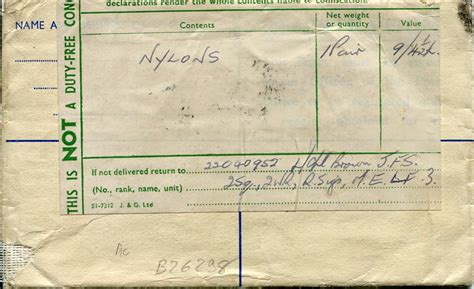 declarations render the whole contents liable to confiscation.
NAME A
Contents
Net weight
or quantity
Value
NYLONS
1 Pair
9/4½d.
THIS IS NOT A DUTY-FREE CONC
If not delivered return to
22040952 L/Cpl Brown J.F.S.
(No., rank, name, unit)
2Sq., 2WR, R. Sigs, M.E.L.F. 3.
51-7312 J. & G. Ltd
AG
B26298